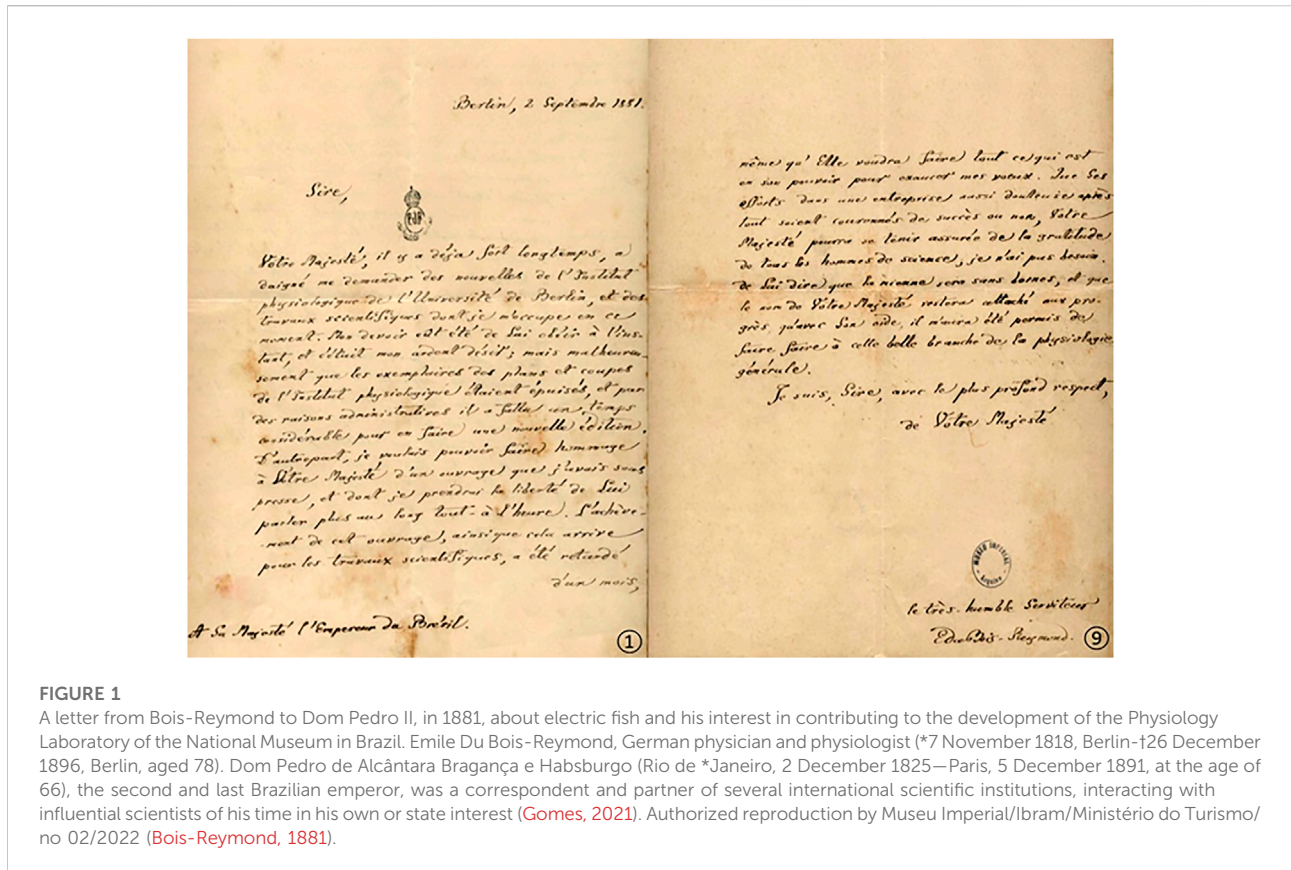 Berlin, 2 Septembre 1881.
Sire,
Votre Majesté, il y a déjà fort longtemps, a
daigné me demander des nouvelles de l'Institut
physiologique de l'Université de Berlin, et des
travaux scientifiques dont je m'occupe en ce
moment. Mon devoir eût été de Lui obéir à l'ins-
tant, et c'était mon ardent désir; mais malheureu-
sement que les exemplaires des plans et coupes
de l'Institut physiologique étaient épuisés, et par
des raisons administratives il a fallu un temps
considérable pour en faire une nouvelle édition.
D'autrepart, je voulais pouvoir faire hommage
à Votre Majesté d'un ouvrage que j'avais sous
presse, et dont je prendrai la liberté de Lui
parler plus au long tout-à-l'heure. L'achève-
-ment de cet ouvrage, ainsique cela arrive
pour les travaux scientifiques, a été retardé
d'un mois,
A Sa Majesté l'Empereur du Brésil.
1
même qu'Elle voudra faire tout ce qui est
en son pouvoir pour exaucer mes voeux. Que Ses
efforts dans une entreprise aussi douteuse après
tout soient couronnés de succès ou non, Votre
Majesté pourra se tenir assurée de la gratitude
de tous les hommes de science; je n'ai pas besoin
de Lui dire que la mienne sera sans bornes, et que
le nom de Votre Majesté restera attaché aux pro-
grès, qu'avec Son aide, il m'aura été permis de
faire faire à cette belle branche de la physiologie
générale.
Je suis, Sire, avec le plus profond respect,
de Votre Majesté
MUSEU IMPERIAL
Arquivo
le très-humble Serviteur
E du Bois-Reymond.
9
FIGURE 1
A letter from Bois-Reymond to Dom Pedro II, in 1881, about electric fish and his interest in contributing to the development of the Physiology
Laboratory of the National Museum in Brazil. Emile Du Bois-Reymond, German physician and physiologist (*7 November 1818, Berlin-†26 December
1896, Berlin, aged 78). Dom Pedro de Alcântara Bragança e Habsburgo (Rio de *Janeiro, 2 December 1825—Paris, 5 December 1891, at the age of
66), the second and last Brazilian emperor, was a correspondent and partner of several international scientific institutions, interacting with
influential scientists of his time in his own or state interest (Gomes, 2021). Authorized reproduction by Museu Imperial/Ibram/Ministério do Turismo/
no 02/2022 (Bois-Reymond, 1881).